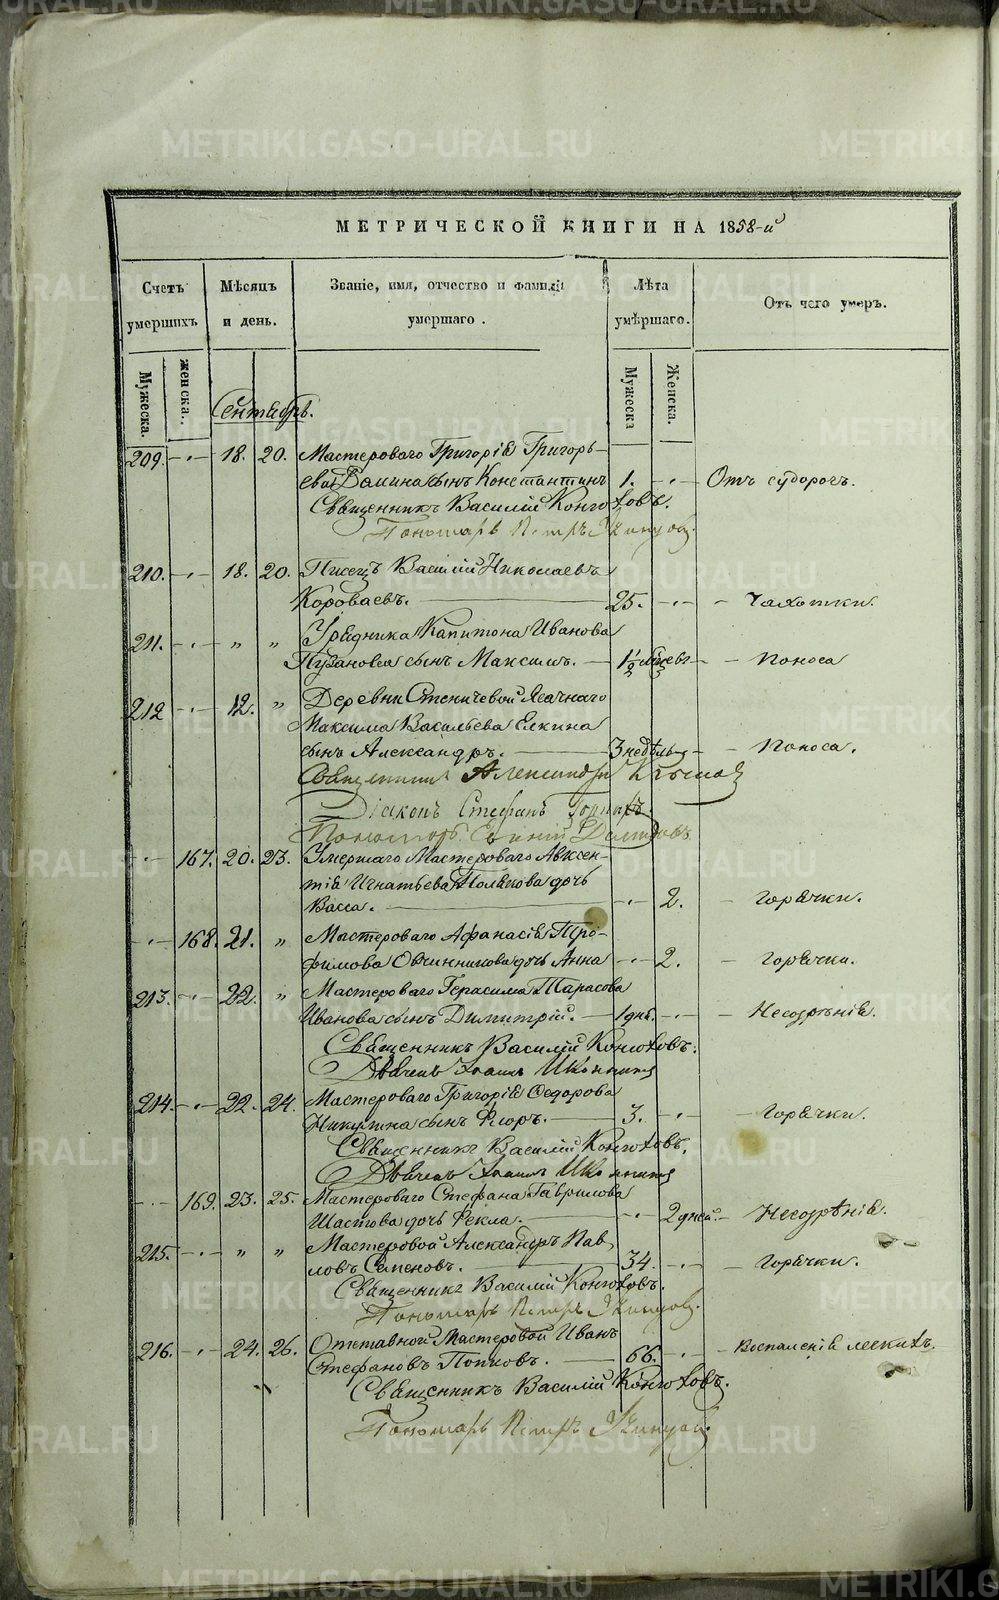 МЕТРИЧЕСКОЙ КНИГИ НА 1858-й
Счетъ умершихъ
Мѣсяцъ и день.
Званіе, имя, отчество и фамилія умершаго.
Лѣта умѣршаго.
Отъ чего умеръ.
Мужеска.
женска.
Мужеска
Женска.
Сентябрь.
209. -"- 18. 20. Мастероваго Григорія Григорь-
ева сынъ Константинъ 1. -"- Отъ судорогъ.
Священникъ Василій
Пономарь Петръ
210. -"- 18. 20. Писецъ Василій Николаевъ
Короваевъ. 25. -"- - Чахотки.
211. -"- " " Урядника Капитона Иванова
Пузанова сынъ Максимъ. 1½ - Поноса
212 -"- 12. " Деревни Ясачнаго
Максима Васильева Елкина
сынъ Александръ. 3 недѣль - Поноса.
Священникъ Александръ
Діаконъ Стефанъ
Пономарь
-"- 167. 20. 23. Умершаго Мастероваго Авксен-
тія Игнатьева Полякова дочь
Васса. -"- 2. - Горячки.
-"- 168. 21. " Мастероваго Афанасія Тро-
фимова Овчинникова дочь Анна -"- 2. - Горячки.
213. -"- 22. " Мастероваго Герасима Тарасова
Иванова сынъ Димитрій. 1 дня. -"- - Несозрѣнія.
Священникъ Василій
214. -"- 22. 24. Мастероваго Григорія Ѳедорова
Никулина сынъ Флоръ. 3. -"- - Горячки.
Священникъ Василій
-"- 169. 23. 25. Мастероваго Стефана Гаврилова
Шастова дочь Фекла. -"- 2 дней. - Несозрѣнія.
215. -"- " " Мастеровой Александръ Пав-
ловъ Семеновъ. 34. -"- - Горячки.
Священникъ Василій
Пономарь Петръ
216. -"- 24. 26. Отставной Мастеровой Иванъ
Стефановъ Попковъ. 66. -"- - Воспаленія легкихъ.
Священникъ Василій
Пономарь Петръ
METRIKI.GASO-URAL.RU